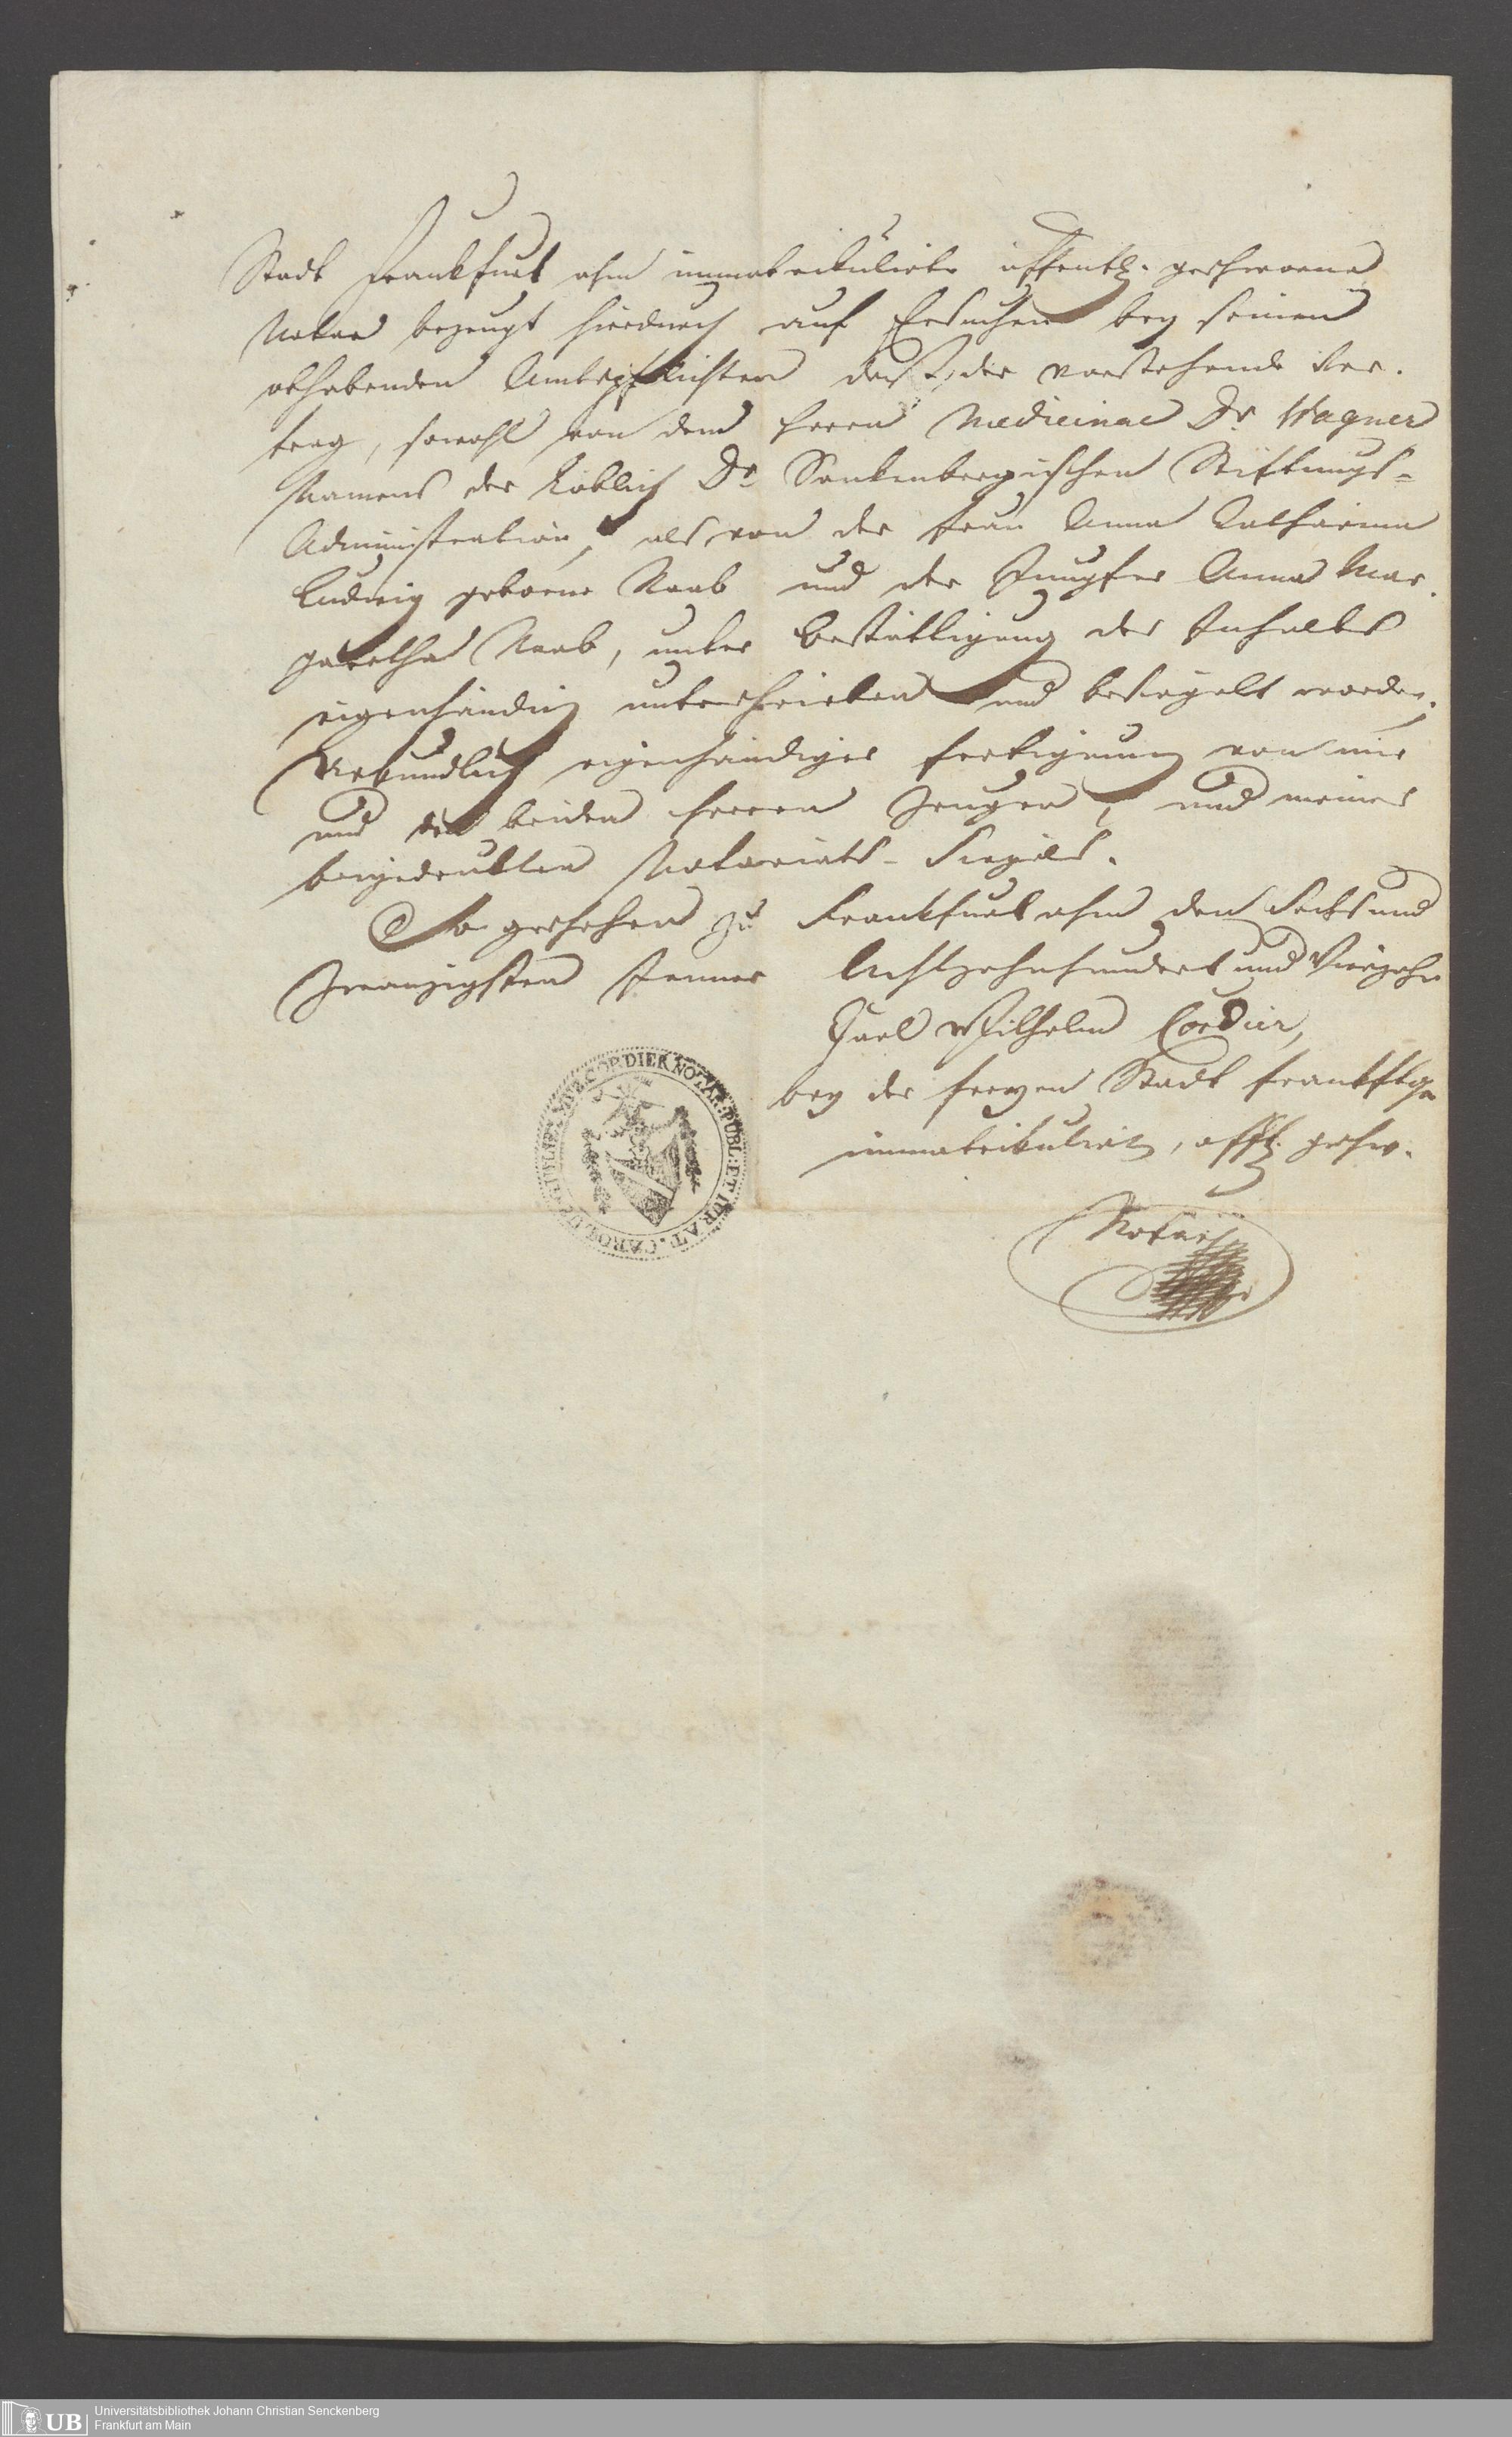 Stadt Frankfurt ahm immatrikulirte öffentl. geschworene
Notar bezeugt hierdurch auf Ersuchen bey seinen
obhabenden Amtspflichten daß, der vorstehende Ver-
trag, sowohl von dem Herrn Medicinae Dr. Wagner
Namens der Löblich Dr. Senkenbergischen Stiftungs-
Administration, als von der Frau Anna Catharina
Ludwig geborne Raab und der Jungfer Anna Mar-
garetha Raab, unter Bestättigung des Inhaltes
eigenhändig unterschrieben und besiegelt worden.
Urkundlich eigenhändiger Fertigung von mir
und den beiden Herren Zeugen, und meines
beygedrukten Notariats-Siegels.
So geschehen zu Frankfurt ahm den Sechs und
Zwanzigsten Jenner Achtzehnhundert und Vierzehn
Carl Wilhelm Cordier,
bey der freyen Stadt Frankft
immatrikulirt, öfftl. geschw.
Notar
CORDIER NOTAR: PUBL: ET IURAT. CAROL
Universitätsbibliothek Johann Christian Senckenberg
Frankfurt am Main
UB